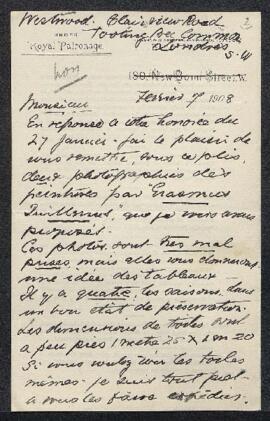 Westwood. Clairview Road
UNDER Tooting Bec Common
Royal Patronage. Londres
S.W
180, New Bond Street, W.
non
Fevrier 7 1908
Monsieur
En reponse a votre honorée du
27 Janvier j'ai le plaisir de
vous remettre, sous ce plis,
deux photographies des
peintures par "Erasmus
Quillinus", que je vous avais
proposés.
Ces photos sont tres mal
prises mais elles vous donneront
une idée des tableaux -
Il y a quatre, les saisons, dans
un bon état de préservation.
Les dimensions de toiles sont
a peu près 1 metre 25 x 1 m 20
Si vous voulez voir les toiles
mêmes - je suis tout prêt
a vous les faire expédier.